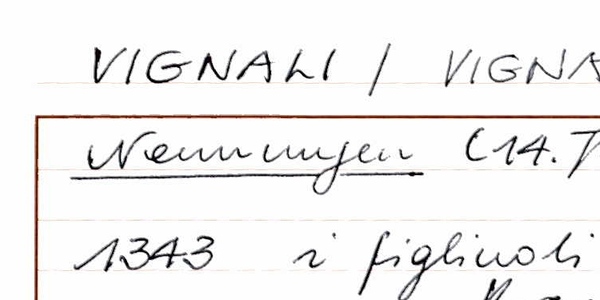 VIGNALI / VIGNA
Nennungen (14.
1343 i figliuoli